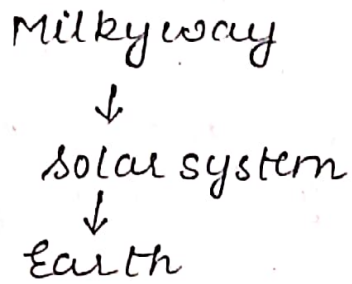 Milkyway
↓
solar system
↓
Earth